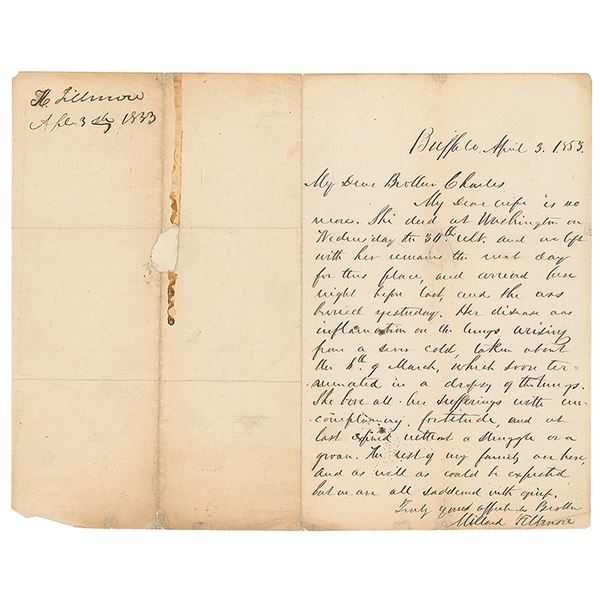 M. Fillmore
Apl. 3 1853
Buffalo, April 3. 1853.
My Dear Brother Charles,
My Dear wife is no
more. She died at Washington on
Wednesday the 30th ult. and we left
with her remains the next day
for this place, and arrived here
night before last, and she was
buried yesterday. Her disease was
inflamation on the lungs arising
from a sever cold, taken about
the 4th of March, which soon ter-
minated in a dropsy of the lungs.
She bore all her sufferings with un-
complaining fortitude, and at
last expired without a struggle or a
groan. The rest of my family are here,
and as well as could be expected
but we are all saddened with grief.
Truly yours affectionate Brother
Millard Fillmore